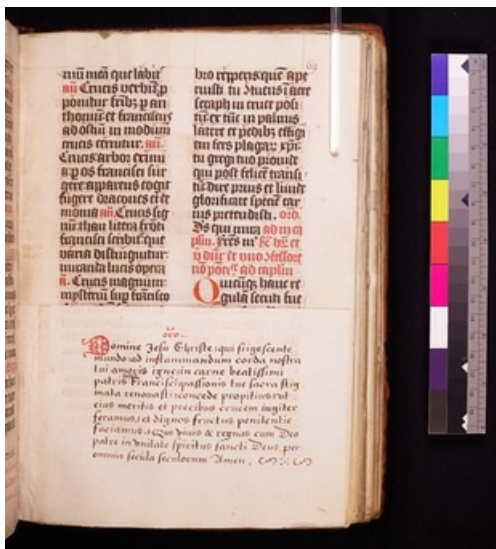 69
num mea que labiū
añ Crucis verbū p
ponitur frībꝫ p an
thoniū et franciscus
ad ostiū in modum
crucis cernitur. añ.
Crucis arbor eximi
a p os francisci fur
gere apparens cogit
fugere dracones et de
monia añ. Crucis sig
nū than littera fronti
francisci scribit que
varia distinguitur
miranda lucis opera
a. Crucis magnum
mysteriū sup francisco
bro
ruisti tu
seraph in cruce posi
tū ex tūc in palmis
latere et pedibꝫ effigi
em fers plagaꝝ xpi:
tu gregi tuo provide
qui post felicē transi
tū dire prius et livide
glorificate speciē car
nis pretendisti. orō.
Ds qui mira ad mi ca
ad capl'm
Q uicūqꝫ hanc re
gulā secuti fue
oro.
Domine Jesu Christe, qui frigescente
mundo, ad inflammandum corda nostra
tui amoris igne in carne beatissimi
patris Francisci passionis tue sacra stig-
mata renovasti: concede propitius, ut
eius meritis et precibus crucem iugiter
feramus, et dignos fructus penitentie
faciamus. Qui vivis & regnas cum Deo
patre in unitate spiritus sancti Deus, per
omnia secula seculorum Amen.